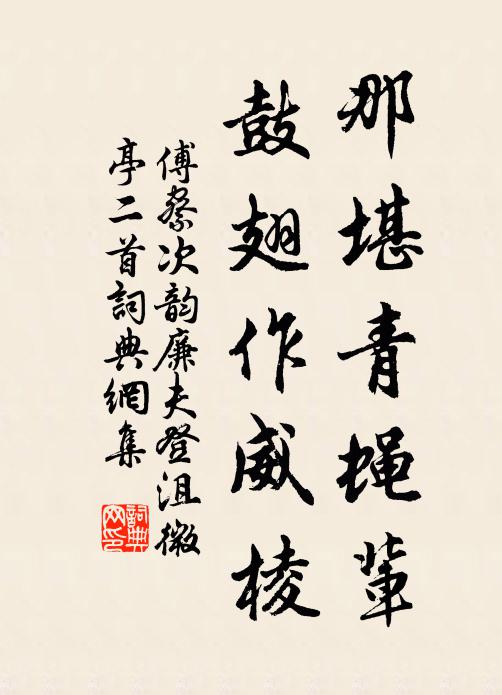 那堪青蝇辈
鼓翅作威棱
傅察次韵廉夫登沮徽
亭二首詞典網集
詞典網印